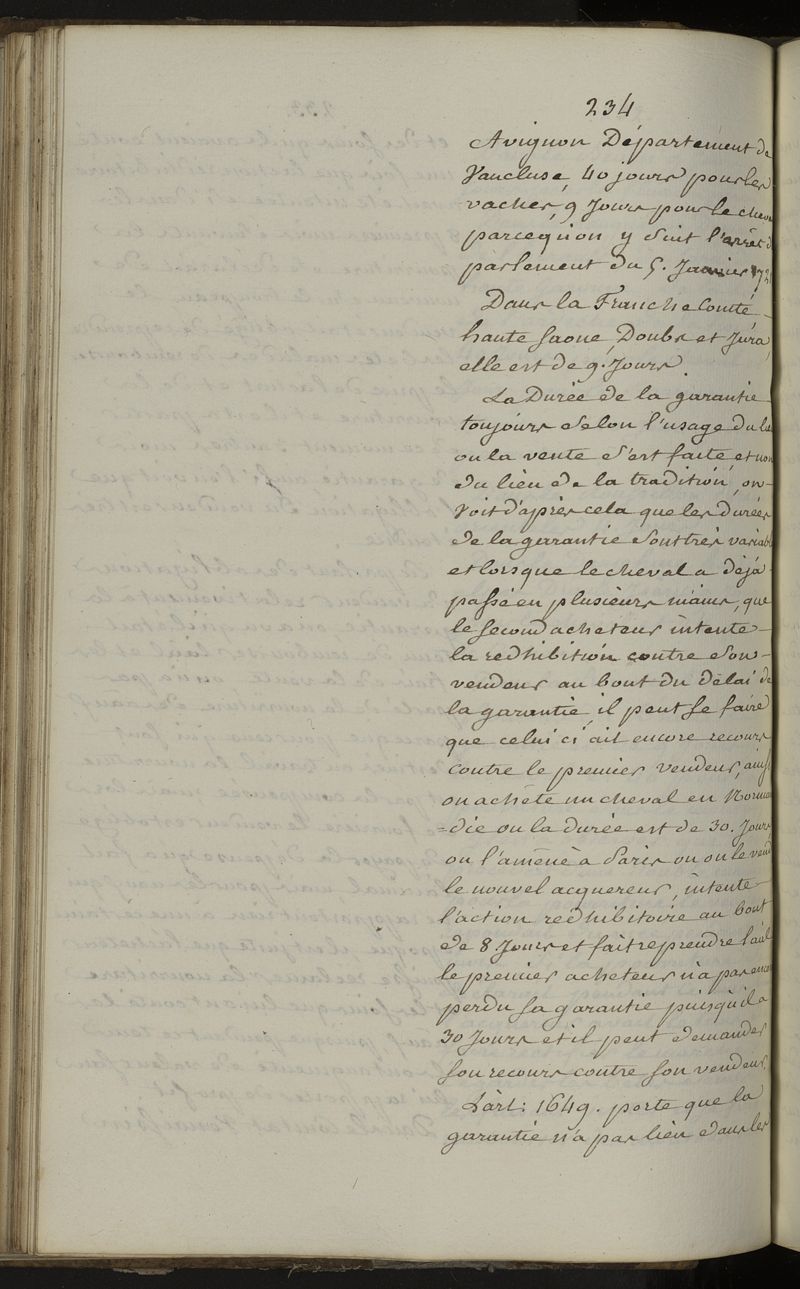 234
Avignon Département de
Vaucluse, 40 jours pour les
vaches, 9 Jours pour le chev
parcequ'on y suit l'arrêt d
parlement du 5. Janvier 172
Dans la Franche Comté
haute Saone, Doubs et Jura,
elle est de 9. Jours.
La Durée de la garantie
toujours selon l'usage du li
ou la vente s'est faite et non
du lieu de la tradition, on
Voit d'après cela que les durées
de la garantie sont très variabl
et lorsque le cheval a déjà
passé en plusieurs mains, que
le second acheteur intente
la redhibition contre son
vendeur au bout du délai de
la garantie, il peut se faire
que celui ci ait encore recours
contre le premier vendeur, ainsi
on achète un cheval en Norman
=die ou la durée est de 30. Jours,
on l'amène à Paris ou on le vend
le nouvel acquereur, intente
l'action redhibitoire au bout
de 8 Jours et fait reprendre l'ail
le premier acheteur n'a pas encor
perdu sa garantie puisqu'il a
30 Jours et il peut demander
son recours contre son vendeur.
L'art: 1649. porte que la
garantie n'a pas lieu dans les